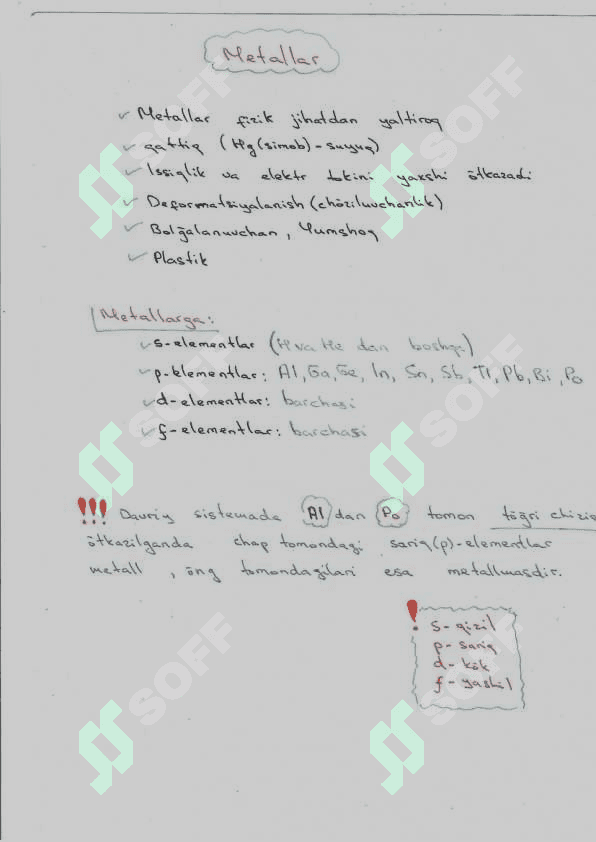 Metallar
Metallar fizik jihatdan yaltiroq
qattiq (Hg(simob)-suyuq)
Issiqlik va elektr tokini yaxshi ötkazadi
Deformatsiyalanish (chöziluvchanlik)
Bolg̃alanuvchan, Yumshoq
Plastik
Metallarga:
s-elementlar (H va He dan boshqa)
p-elementlar: Al, Ga, Ge, In, Sn, Sb, Tl, Pb, Bi, Po
d-elementlar: barchasi
f-elementlar: barchasi
!!! Davriy sistemada Al dan Po tomon töğri chiziq
ötkazilganda chap tomondagi sariq(p)-elementlar
metall, öng tomondagilari esa metallmasdir.
! s-qizil
p-sariq
d-kök
f-yashil
SOFF
SOFF
SOFF
SOFF
SOFF
SOFF